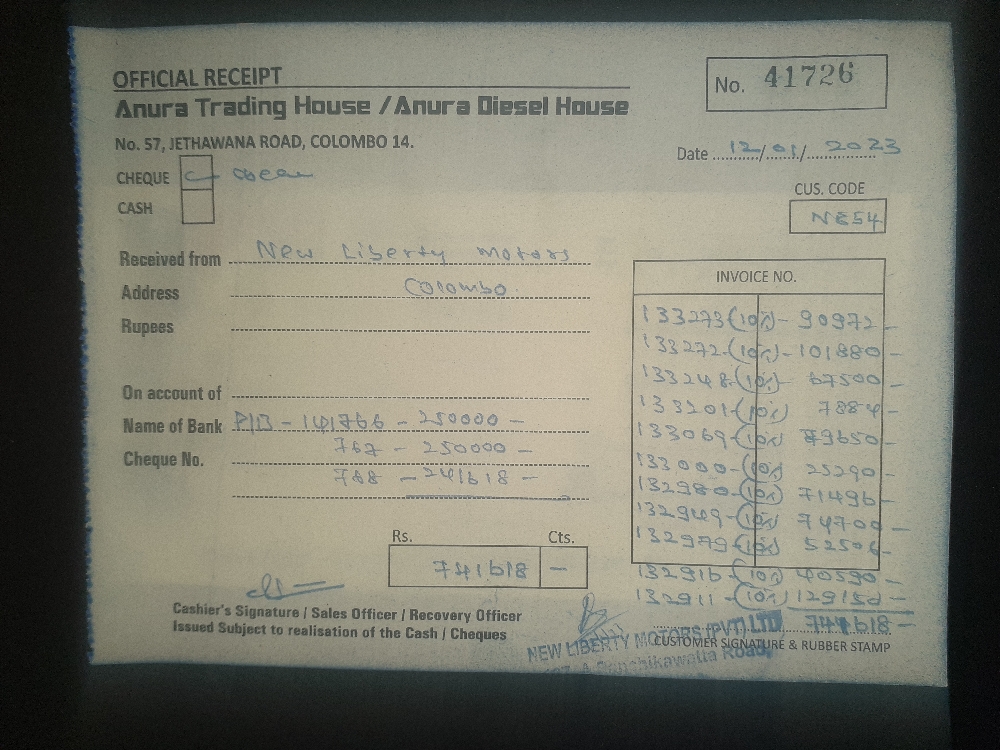 OFFICIAL RECEIPT
No. 41726
Anura Trading House / Anura Diesel House
No. 57, JETHAWANA ROAD, COLOMBO 14.
Date 12/01/2023
CHEQUE
CASH
CUS. CODE
NE54
Received from New Liberty Motors
Address Colombo.
Rupees
On account of
Name of Bank P/B - 141766 - 250000 -
Cheque No. 767 - 250000 -
768 - 241618 -
Rs. Cts.
741618 -
INVOICE NO.
133273 (10%) - 90972 -
133272 - (10%) - 101880 -
133248 - (10%) - 67500 -
133201 - (10%) 7884 -
133069 - (10%) 79650 -
133000 - (10%) 25290 -
132980 - (10%) 71496 -
132949 - (10%) 74700 -
132979 - (10%) 52506 -
132916 - (10%) 40590 -
132911 - (10%) 129150 -
741618 -
Cashier's Signature / Sales Officer / Recovery Officer
Issued Subject to realisation of the Cash / Cheques
NEW LIBERTY MOTORS (PVT) LTD
CUSTOMER SIGNATURE & RUBBER STAMP
Panchikawatta Road,